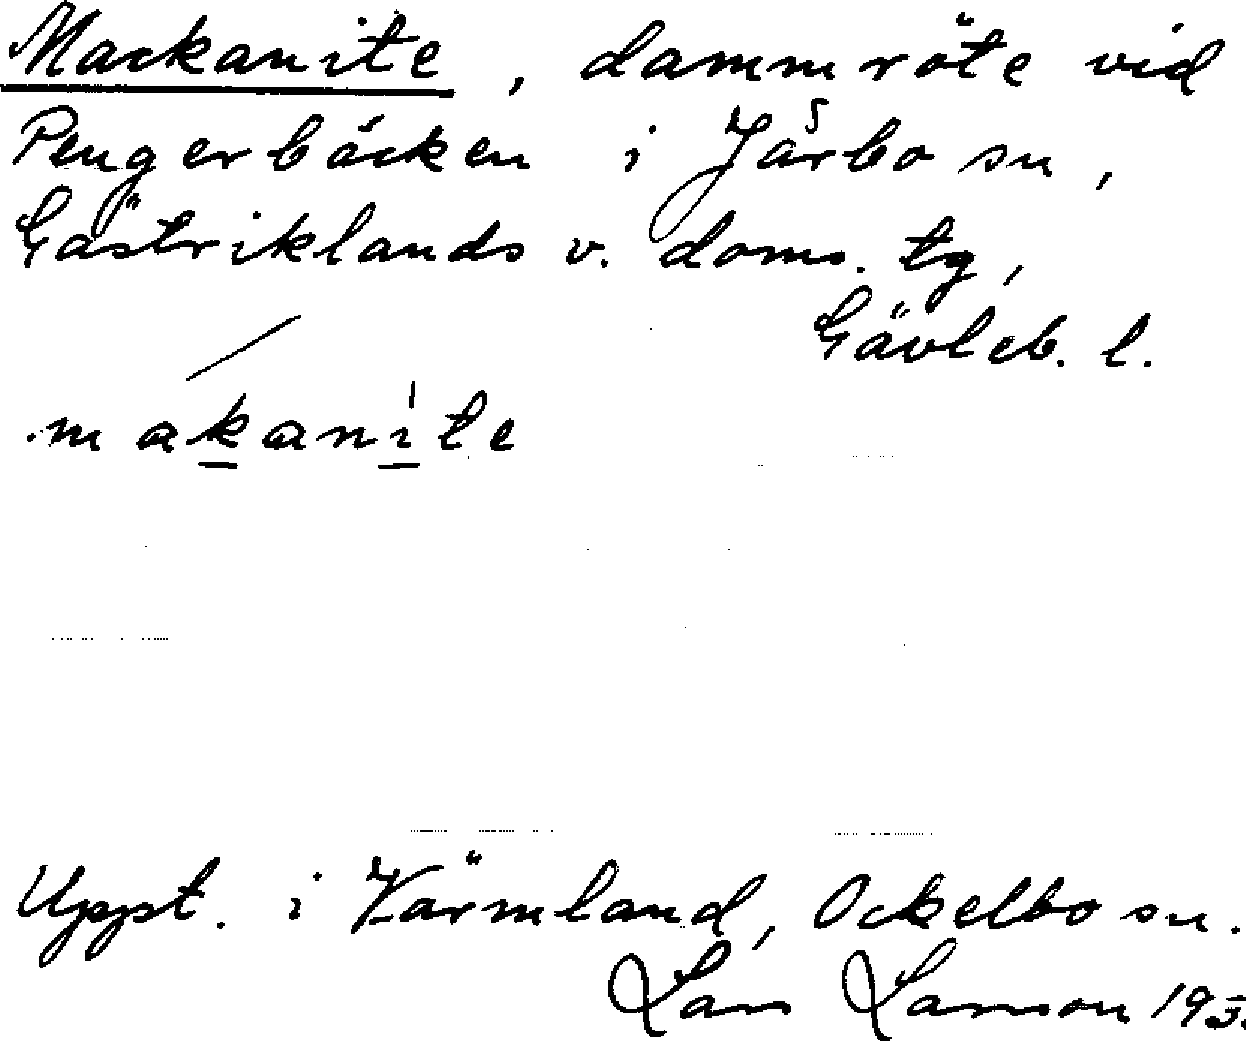 Mackanite, dammröte vid
Pengerbäcken i Järbo sn,
Gästriklands v. doms. tg,
Gävleb. l.
makanite
Uppt. i Värmland, Ockelbo sn.
Lars Larsson